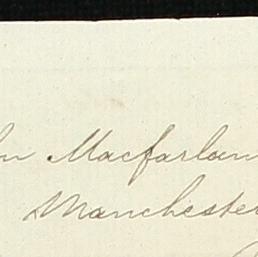 hn Macfarlan
Manchester